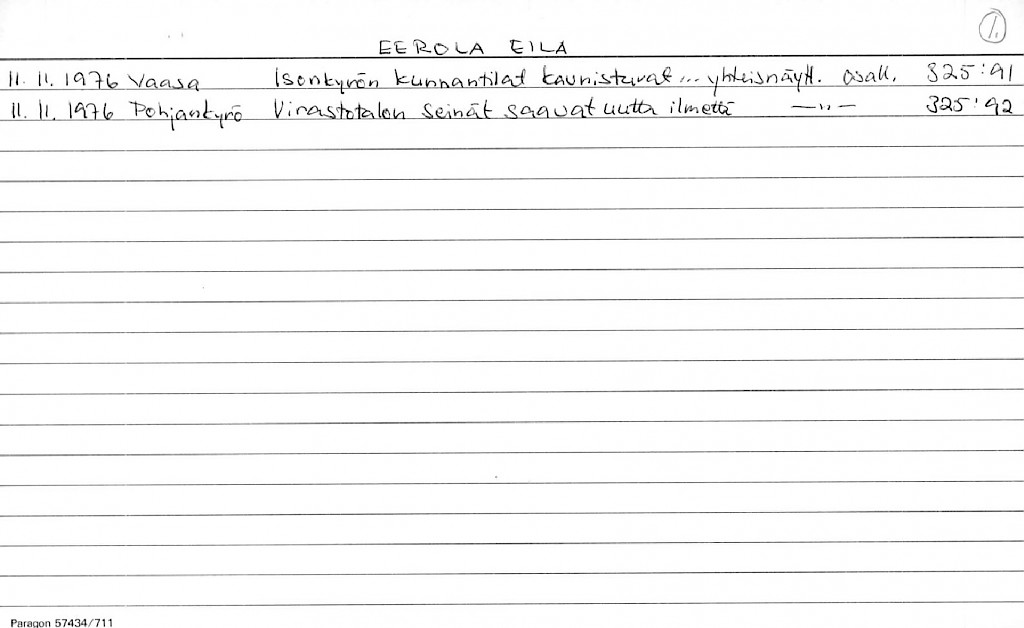 1.
EEROLA EILA
11.11.1976 Vaasa Isonkyrön kunnantilat kaunistuvat... yhteisnäytt. osall. 325:91
11.11.1976 Pohjankyrö Virastotalon seinät saavat uutta ilmettä —"— 325:92
Paragon 57434/711